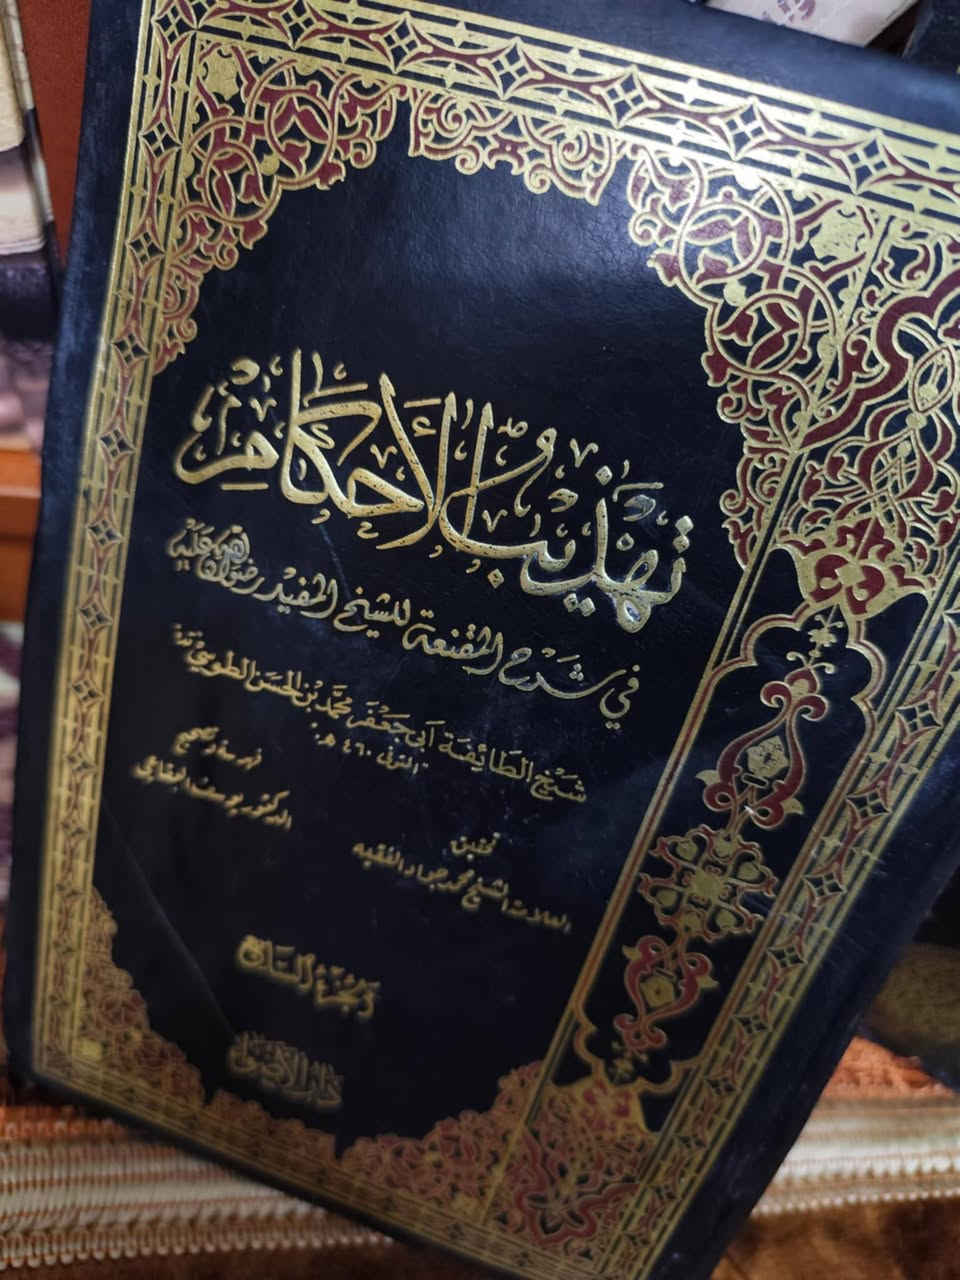 تهذيب الأحكام
في شرح المقنعة للشيخ المفيد رضوان الله عليه
شيخ الطائفة أبي جعفر محمد بن الحسن الطوسي
المتوفى ٤٦٠ هـ
تحقيق
العلامة الشيخ محمد جواد الفقيه
فهرسة وتصحيح
الدكتور يوسف البقاعي
الجزء
دار الأضواء